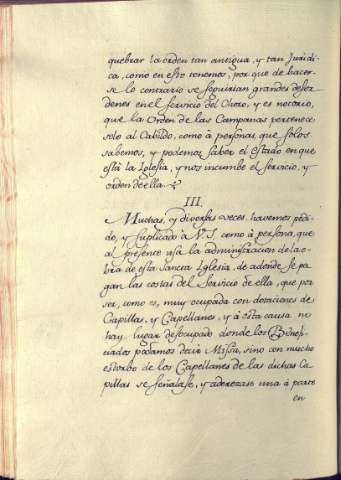 quebrar la orden tan antigua, y tan Juridi-
ca, como en esto tenemos, por que de hacer-
se lo contrario se seguirian grandes desor-
denes en el servicio del Choro, y es notorio,
que la Orden de las Campanas pertenece
solo al Cabildo, como à personas, que solos
sabemos, y podemos saber el estado en que
està la Iglesia, y nos incumbe el servicio, y
orden de ella.
III.
Muchas, y diversas veces havemos pedi-
do, y suplicado à V.S. como à persona, que
al presente usa la administracion de la o-
bra de esta Sancta Iglesia, de adonde se pa-
gan las costas del Servicio de ella, que por
ser, como es, muy ocupada con dotaciones de
Capillas, y Capellanes, y à esta causa no
hay lugar desocupado donde los Benefi-
ciados podamos decir Missa, sino con mucho
estorbo de los Capellanes de las dichas Ca-
pillas se señalase, y aderezase una à parte
en